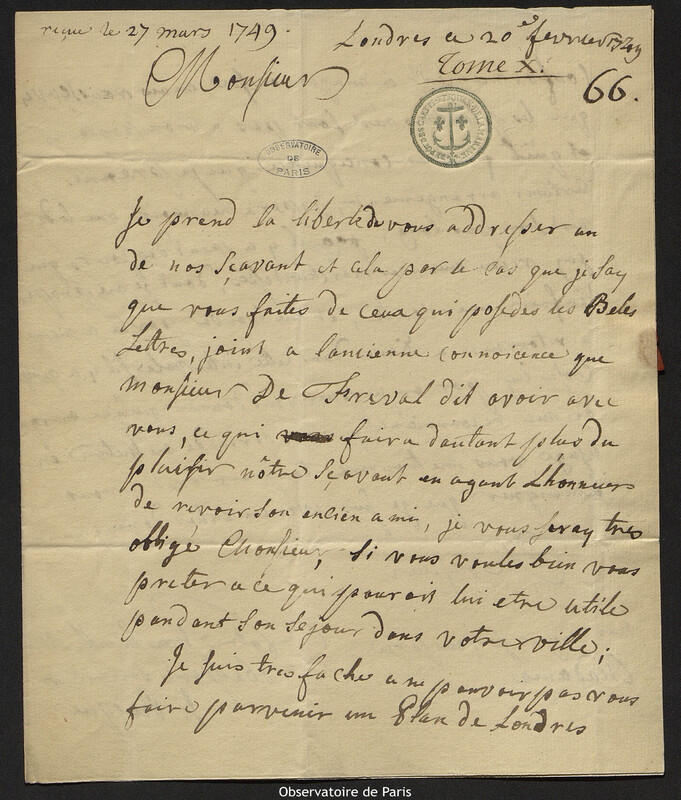 reçue le 27 mars 1749.
Londres ce 20e fevrier 1749
Tome X.
66.
Monsieur
DEPOT DES CARTES PLANS DE LA MARINE
OBSERVATOIRE
DE
PARIS
Je prend la liberte de vous addresser un
de nos sçavant et cela par le cas que je say
que vous faites de ceux qui posedes les Beles
Lettres, joint a lancienne connoicence que
monsieur De Freval dit avoir avec
vous, ce qui faira dautant plus du
plaisir nôtre sçavant en ayant Lhonneur
de revoir son encien ami, je vous seray tres
obligé Monsieur, si vous voules bien vous
preter a ce qui pouroit lui etre utile
pandant son sejour dans votre ville;
Je suis tres fache a ne pouvoir pas vous
faire parvenir un Plan de Londres
Observatoire de Paris